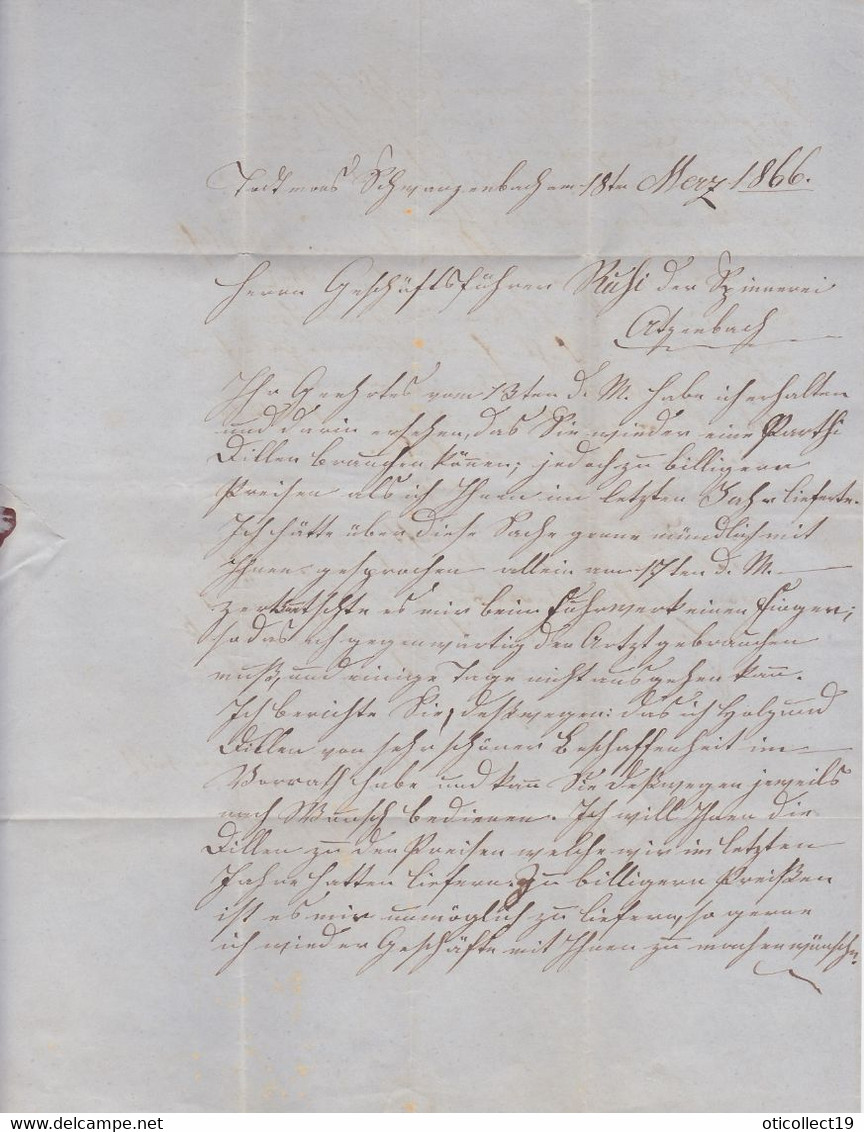 Todtmoos Schwarzenbach am 18ten Merz 1866.
Herrn Geschäftsführer Rühi der Spinnerei
Atzenbach
Ihr Geehrtes vom 13ten d. M. habe ich erhalten
und darin ersehen, das Sie wieder eine Parthi
Dillen brauchen können; jedoch zu billigern
Preisen als ich Ihnen im letzten Jahr lieferte.
Ich hätte über diese Sache gerne mündlich mit
Ihnen gesprochen allein am 17ten d. M.
zerkwetschte es mir beim Fuhrwerk einen Finger;
so das ich gegenwärtig den Artzt gebrauchen
muß, und einige Tage nicht ausgehen kann.
Ich berichte Sie, deßwegen: das ich Holz und
Dillen von sehr schöner Beschaffenheit im
Vorrath habe und kann Sie deßwegen jeweils
nach Wunsch bedienen. Ich will Ihnen die
Dillen zu den Preisen welche wir im letzten
Jahre hatten liefern. Zu billigern Preißen
ist es mir unmöglich zu liefern, so gerne
ich wieder Geschäfte mit Ihnen zu machen wünsche.
oticollect19